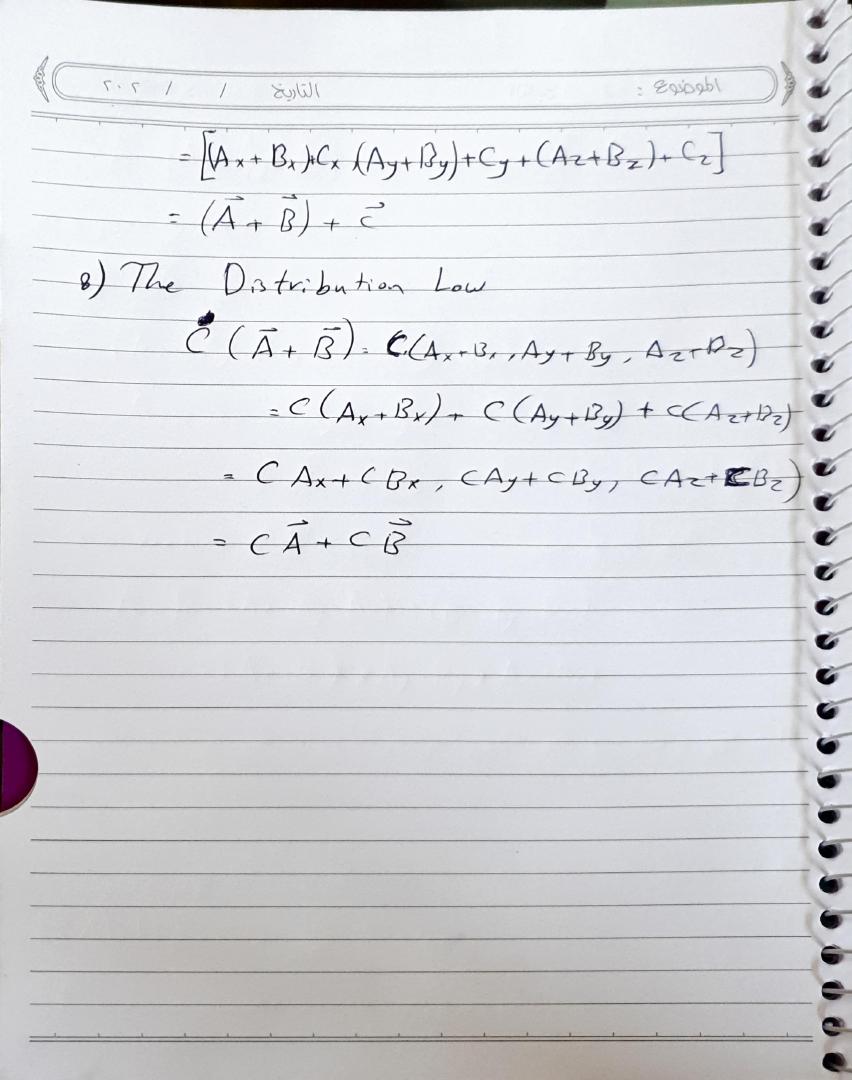 الموضوع : التاريخ / / ٢٠٢
= [(Ax + Bx)+Cx, (Ay+By)+Cy + (Az+Bz)+ Cz]
= (A⃗ + B⃗) + c⃗
8) The Distribution Low
C (A⃗ + B⃗) = C(Ax+Bx, Ay+By, Az+Bz)
= C(Ax+Bx)+ C(Ay+By) + C(Az+Bz)
= C Ax + C Bx, CAy + CBy, CAz + CBz)
= C A⃗ + C B⃗